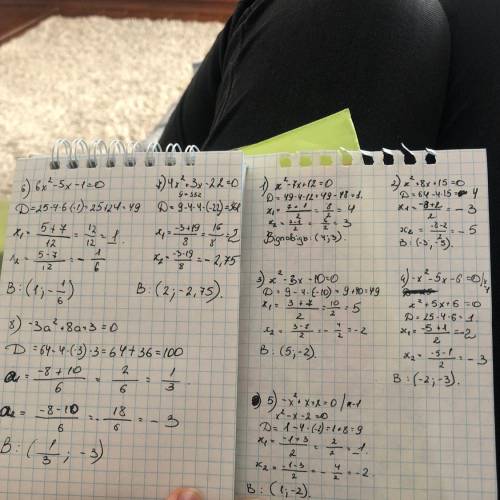 6) 6x²-5x-1=0
D=25-4·6·(-1)=25+24=49
x₁ = (5+7)/12 = 12/12 = 1
x₂ = (5-7)/12 = -1/6
В: (1; -1/6)
4x²+3x-22=0
D=9-4·4·(-22)=361
x₁ = (-3+19)/8 = 16/8 = 2
x₂ = (-3-19)/8 = -2,75
В: (2; -2,75).
8) -3a²+8a+3=0
D=64-4·(-3)·3=64+36=100
a₁ = (-8+10)/6 = 2/6 = 1/3
a₂ = (-8-10)/6 = -18/6 = -3
В: (1/3; -3)
1) x²-7x+12=0
D=49-4·12=49-48=1.
x₁ = (7+1)/2 = 8/2 = 4
x₂ = (7-1)/2 = 6/2 = 3
Відповідь: (4; 3).
2) x²+8x+15=0
D=64-4·15=4
x₁ = (-8+2)/2 = -3
x₂ = (-8-2)/2 = -5
В: (-3; -5).
3) x²-3x-10=0
D=9-4·(-10)=9+40=49
x₁ = (3+7)/2 = 10/2 = 5
x₂ = (3-7)/2 = -4/2 = -2
В: (5; -2).
4) -x²-5x-6=0
x²+5x+6=0
D=25-4·6=1.
x₁ = (-5+1)/2 = -2
x₂ = (-5-1)/2 = -3
В: (-2; -3).
5) -x²+x+2=0 |·-1
x²-x-2=0
D=1-4·(-2)=1+8=9
x₁ = (-1+3)/2 = 2/2 = 1.
x₂ = (-1-3)/2 = -4/2 = -2.
В: (1; -2).